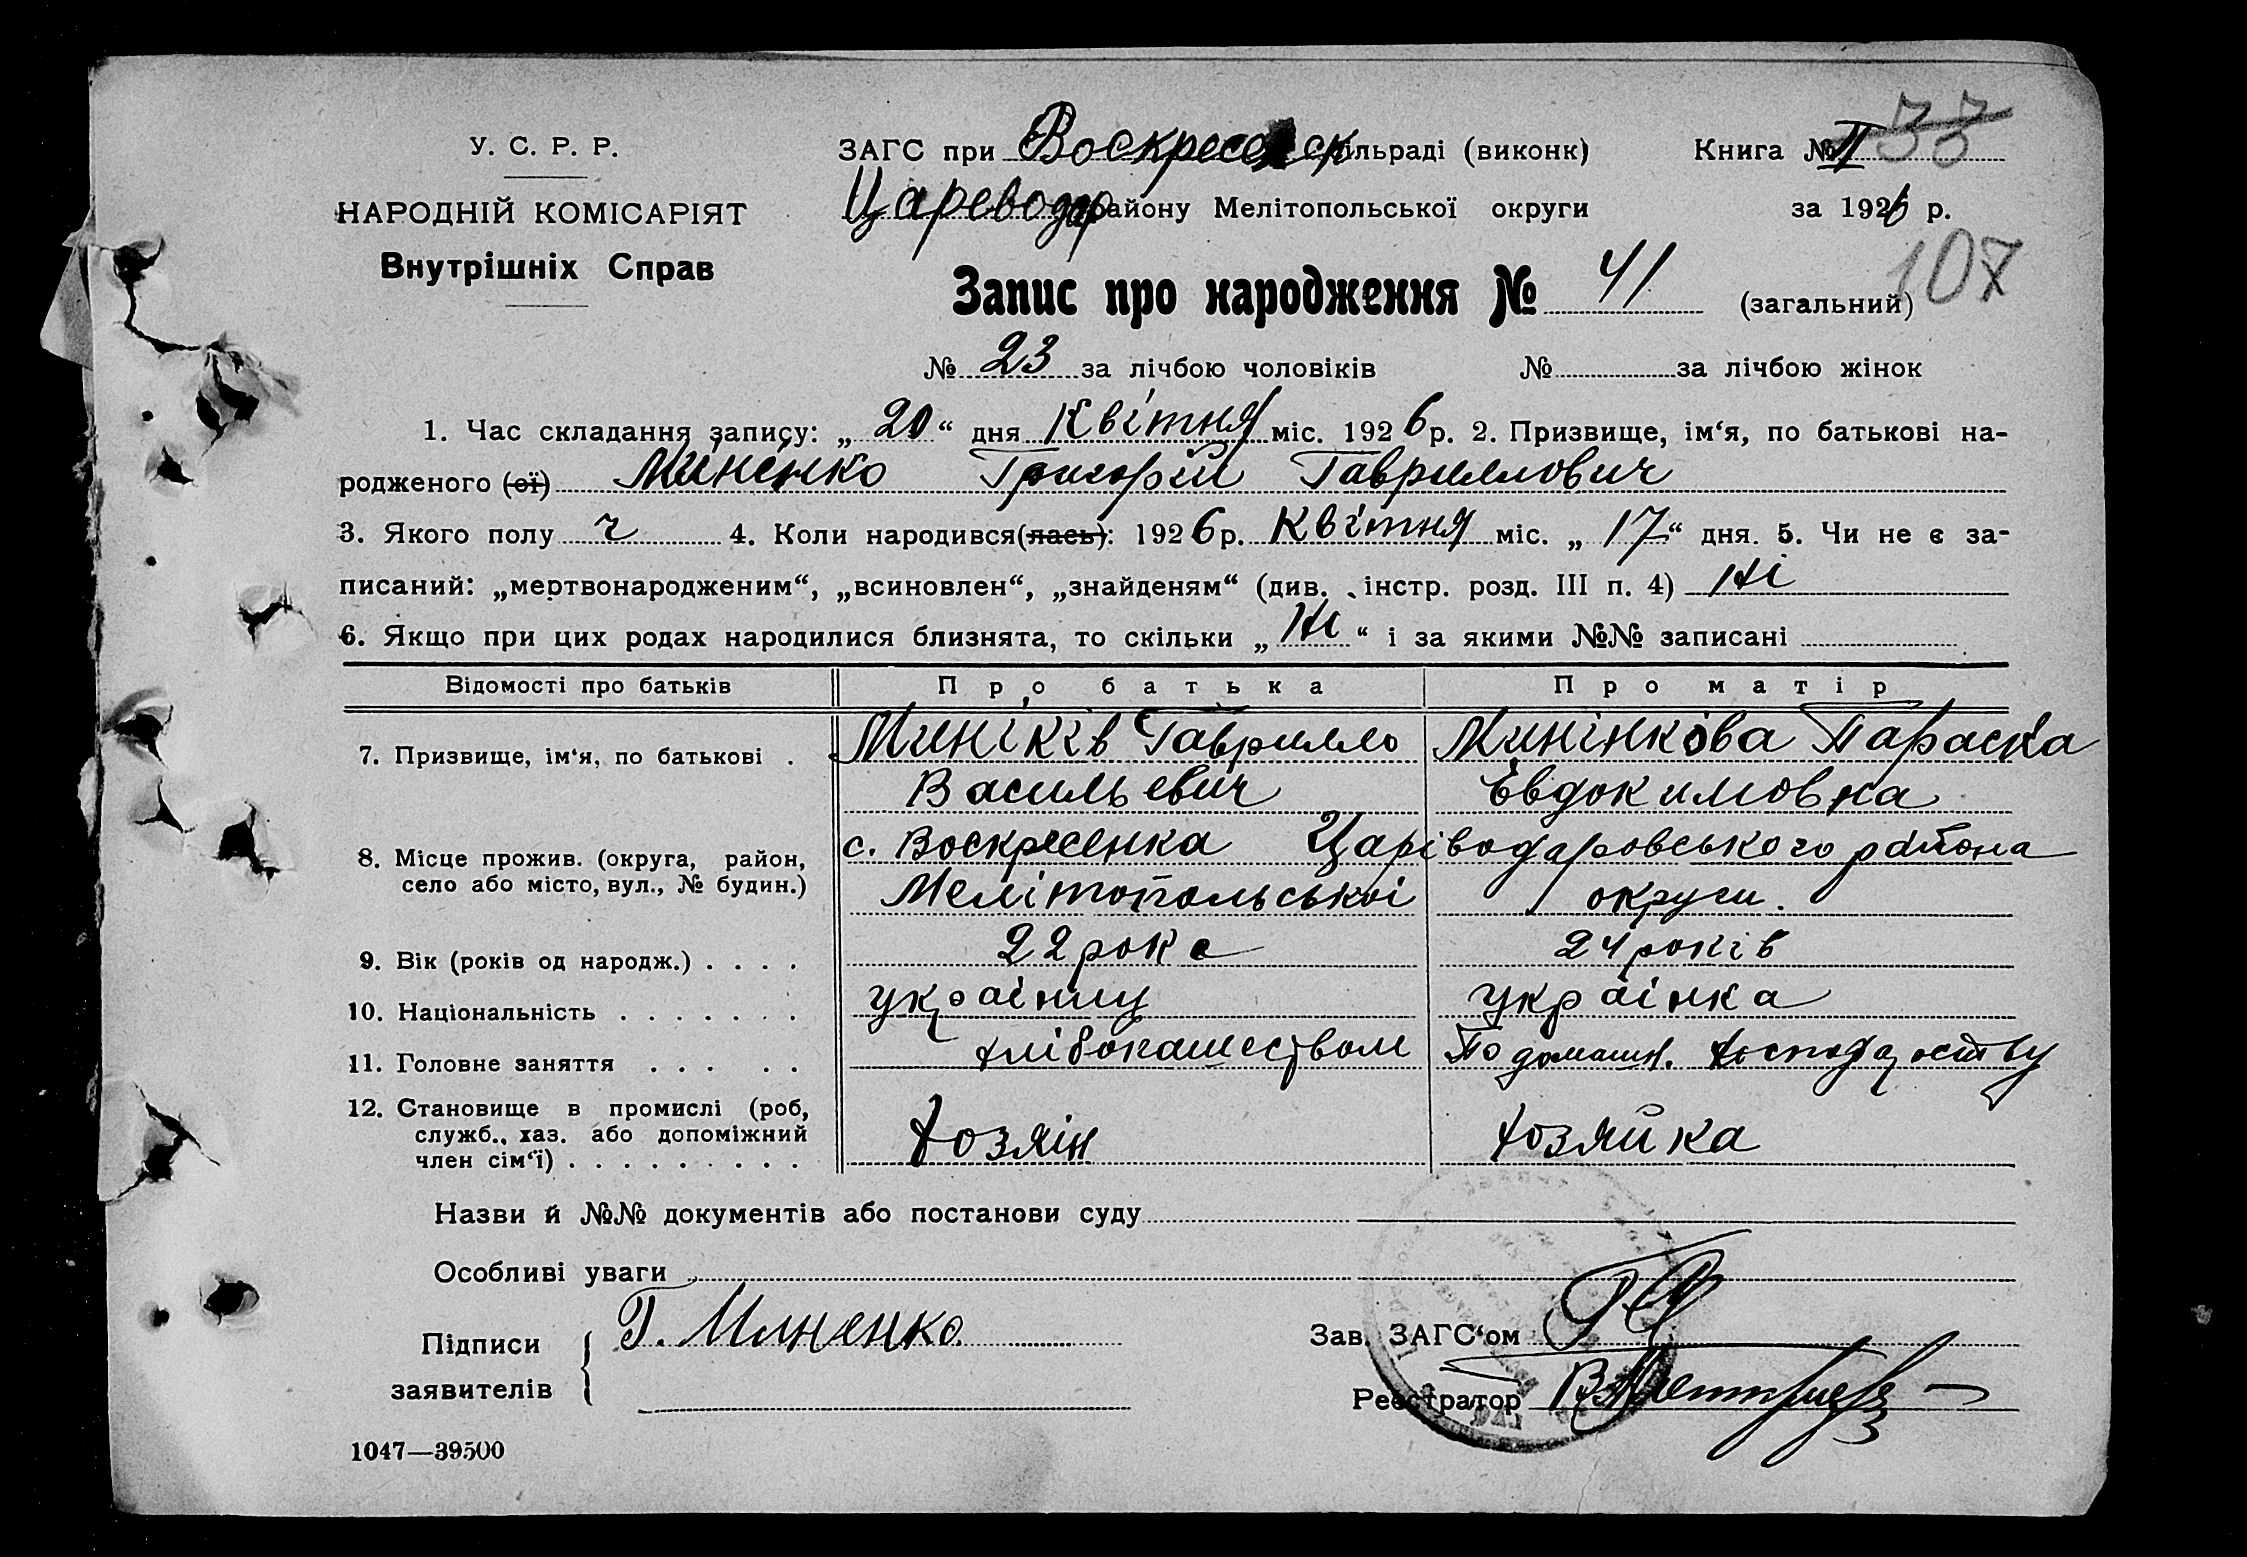 У. С. Р. Р.
НАРОДНІЙ КОМІСАРІЯТ
Внутрішніх Справ
ЗАГС при Воскресенск сільраді (виконк) Книга № II 33
Цареводар району Мелітопольської округи за 1926 р.
107
Запис про народження № 41 (загальний)
№ 23 за лічбою чоловіків № за лічбою жінок
1. Час складання запису: „20“ дня Квітня міс. 1926 р. 2. Призвище, ім‘я, по батькові на-
родженого (ої) Миненко Григорій Гаврилович
3. Якого полу ч 4. Коли народився(лась): 1926 р. Квітня міс. „17“ дня. 5. Чи не є за-
писаний: „мертвонародженим“, „всиновлен“, „знайденям“ (див. інстр. розд. III п. 4) Ні
6. Якщо при цих родах народилися близнята, то скільки „Ні“ і за якими №№ записані
Відомості про батьків Про батька Про матір
7. Призвище, ім‘я, по батькові . Миніків Гаврилло Минінкова Параска
Васильевич Евдокимовна
8. Місце прожив. (округа, район, село або місто, вул., № будин.) с. Воскресенка Царіводаровського району
Мелітопольськоі округи.
9. Вік (років од народж.) . . . . 22 рока 24 років
10. Національність . . . . . . . украінец украінка
11. Головне заняття . . . . . хлібопашеством По домашн. господарству
12. Становище в промислі (роб, служб., хаз. або допоміжний член сім‘ї) . . . . . . . . . хозяін хозяйка
Назви й №№ документів або постанови суду
Особливі уваги
Підписи заявителів Г. Миненко
Зав. ЗАГС‘ом
Реєстратор
1047—39500